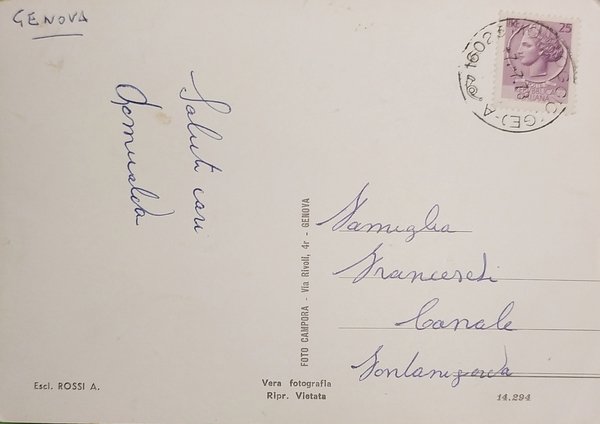 GENOVA
Saluti cari
Romualda
LIRE 25
REPUBBLICA
ITALIANA
16025
(GE)
FOTO CAMPORA - Via Rivoli, 4r - GENOVA
Famiglia
Canale
Fontanigorda
Escl. ROSSI A.
Vera fotografia
Ripr. Vietata
14.294